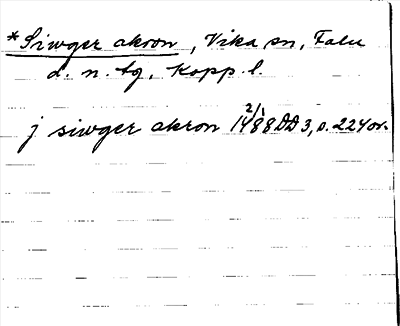 *Siwger akron, Vika sn, Falu
d. n. tg, Kopp. l.
j siwger akron 2/1 1488 DD 3, s. 224 or.